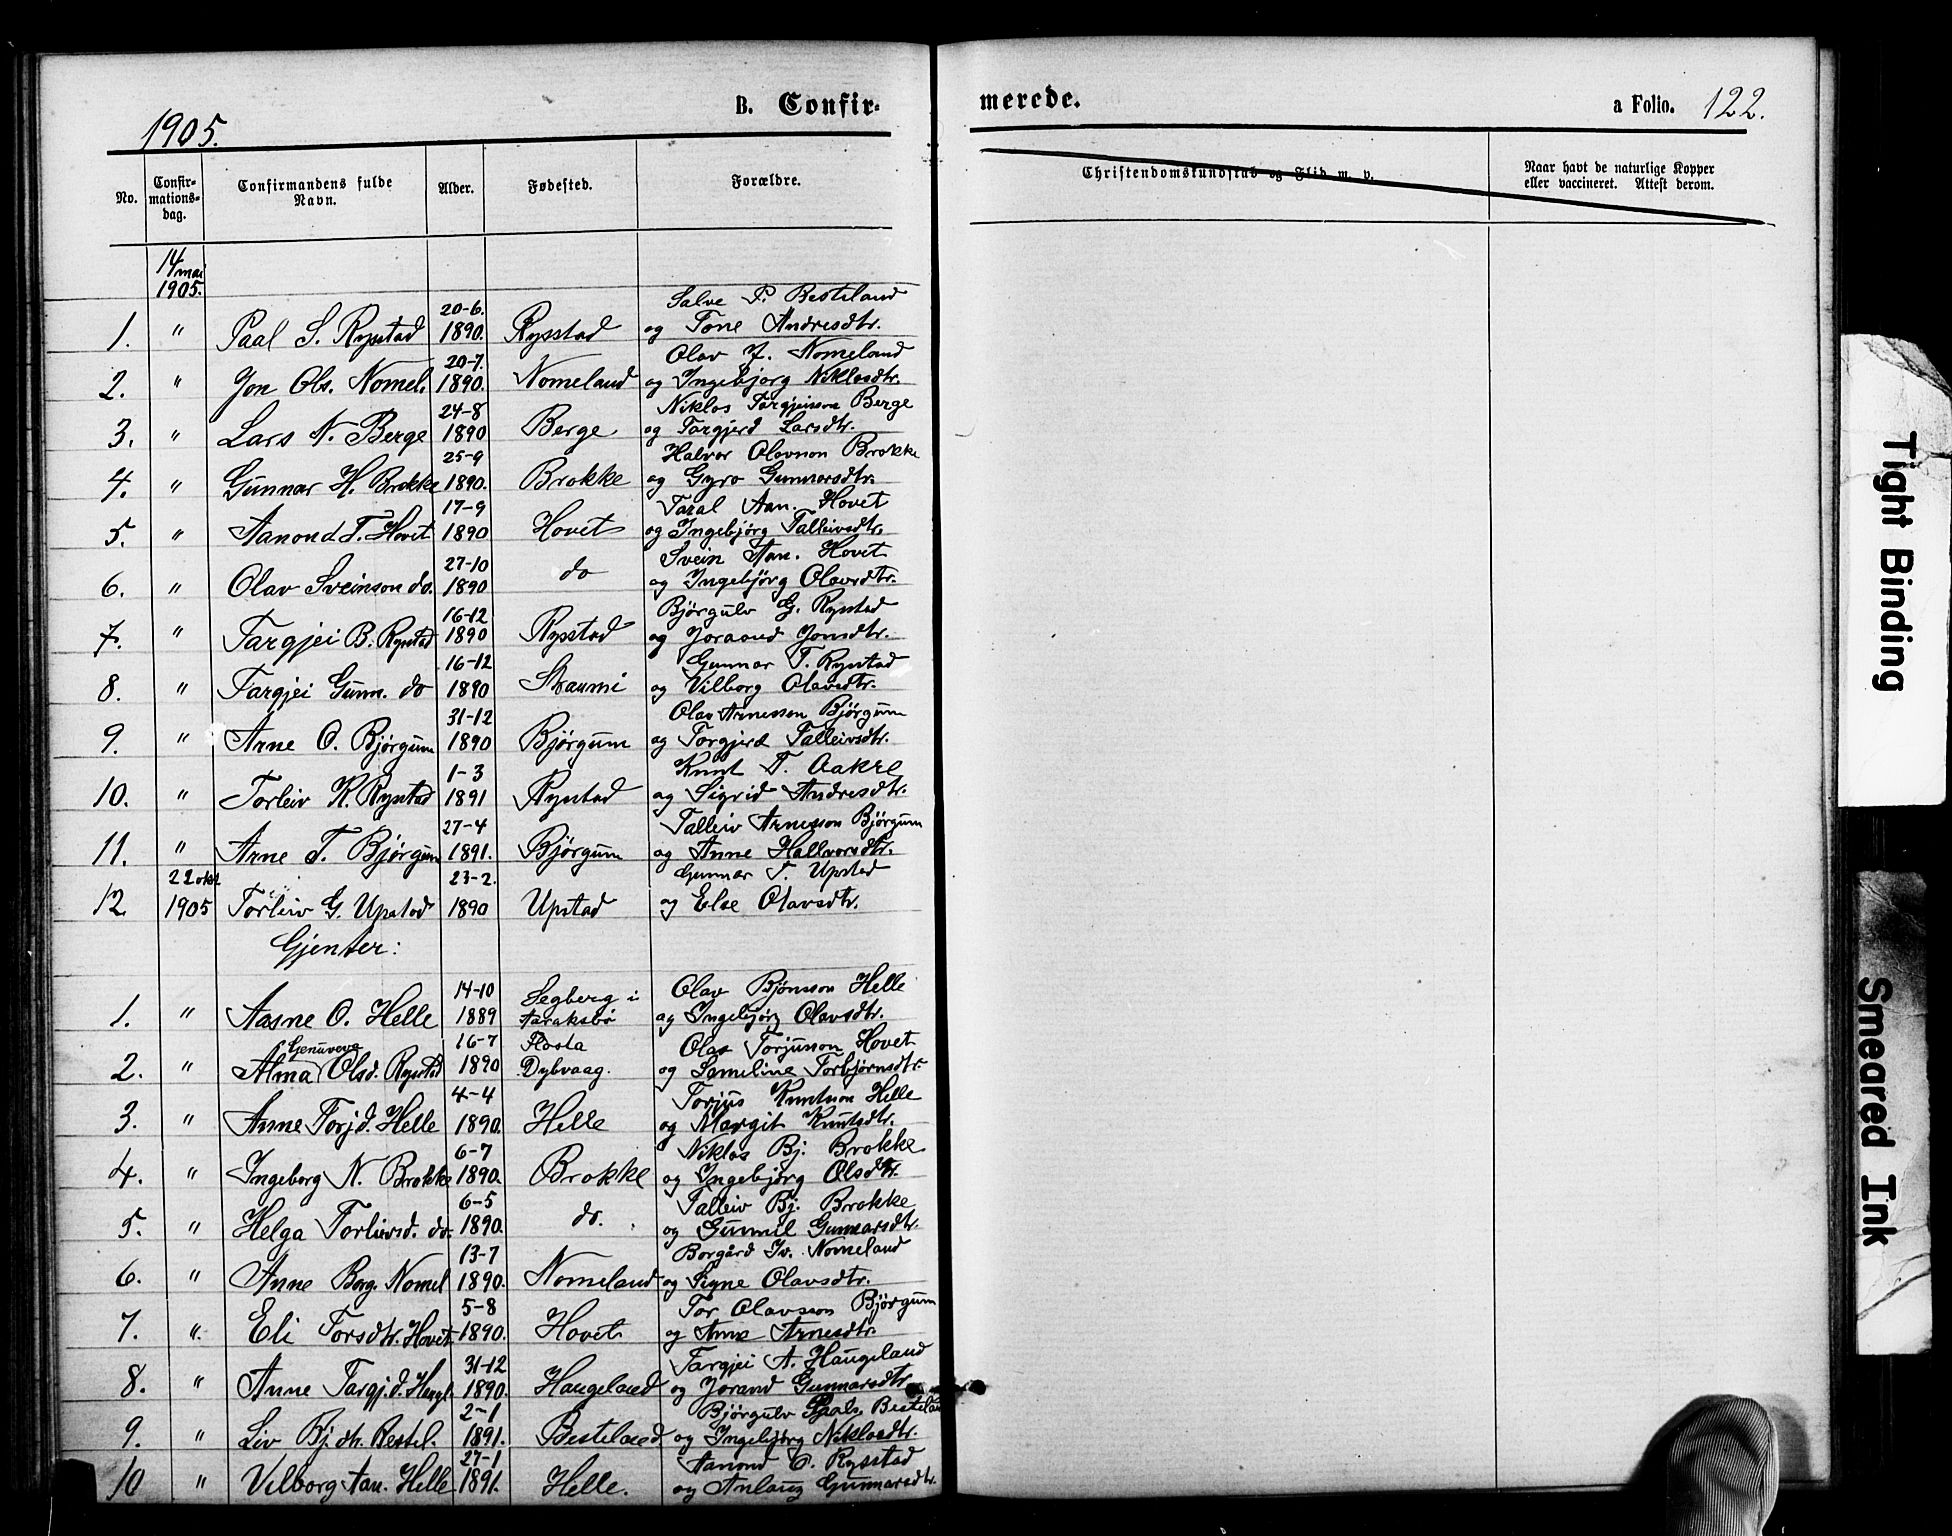 1905.
B. Confir-
merede.
a Folio. 122.
No.
Confir-
mations-
dag.
Confirmandens fulde
Navn.
Alder.
Fødested.
Forældre.
Christendomskundskab og Flid m. v.
Naar havt de naturlige Kopper
eller vaccineret. Attest derom.
14 mai
1905.
20-6. Salve P. Besteland
1. " Paal S. Rysstad 1890. Rysstad og Tone Andresdtr.
20-7. Olav J. Nomeland
2. " Jon Ols. Nomel. 1890. Nomeland og Ingebjorg Niklosdtr.
24-8 Niklos Targjeisson Berge
3. " Lars N. Berge 1890 Berge og Targjerd Larsdtr.
25-9 Halvor Olavson Brokke
4. " Gunnar H. Brokke 1890. Brokke og Gyro Gunnarsdtr.
17-9 Taral Aan. Hovet
5. " Aanond T. Hovet 1890 Hovet og Ingebjörg Talleivsdtr.
27-10 Svein Aan. Hovet
6. " Olav Sveinson do. 1890 do og Ingebjörg Olavsdtr.
16-12 Bjørgulv G. Rystad
7. " Targjei B. Rystad 1890 Rysstad og Joraand Jonsdtr.
16-12 Gunnar T. Rystad
8. " Targjei Gunn. do 1890 Straumi og Vilborg Olavsdtr.
31-12 Olav Arnesson Bjørgum
9. " Arne O. Bjørgum 1890 Bjørgum og Torgjerd Talleivsdtr.
1-3 Knut T. Aakre
10. " Torleiv K. Rystad 1891 Rystad og Sigrid Andresdtr.
27-4 Talleiv Arnesson Bjørgum
11. " Arne T. Bjørgum 1891. Bjørgum og Anne Hallvorsdtr.
22 okt 23-2. Gunnar T. Upstad
12. 1905 Torleiv G. Upstad 1890 Upstad og Else Olavsdtr.
Gjenter:
14-10 Segberg i Olav Bjønsson Helle
1. " Aasne O. Helle 1889 Aaraksbø og Ingebjørg Olavsdtr.
Genuveva 16-7 Flosta Olav Torjusson Hovet
2. " Alma Olsd. Rystad 1890 Dybvaag. og Lomeline Torbjørnsdtr.
4-4 Torjus Knutson Helle
3. " Anne Torjd. Helle 1890. Helle og Margit Knutsdtr.
6-7 Niklos Bj. Brokke
4. " Ingeborg N. Brokke 1890. Brokke og Ingebjørg Olsdtr.
6-5 Talleiv Bj. Brokke
5. " Helga Torleivsd. do. 1890. do. og Gunnil Gunnarsdtr.
13-7 Borgård Iv. Nomeland
6. " Anne Borg. Nomel 1890. Nomeland og Signe Olavsdtr.
5-8 Tor Olavsson Bjørgum
7. " Eli Torsdtr. Hovet 1890. Hovet og Anne Arnesdtr.
31-12 Targjei A. Haugeland
8. " Anne Targj.d. Haugl. 1890. Haugeland og Jorand Gunnarsdtr.
2-1 Bjørgulv Paals. Besteland
9. " Liv Bj.dtr. Bestel. 1891. Besteland og Ingebjørg Niklosdtr.
27-1 Aanond O. Rysstad
10 " Vilborg Aan. Helle 1891. Helle. og Anlaug Gunnarsdtr.
Tight Binding
Smeared Ink